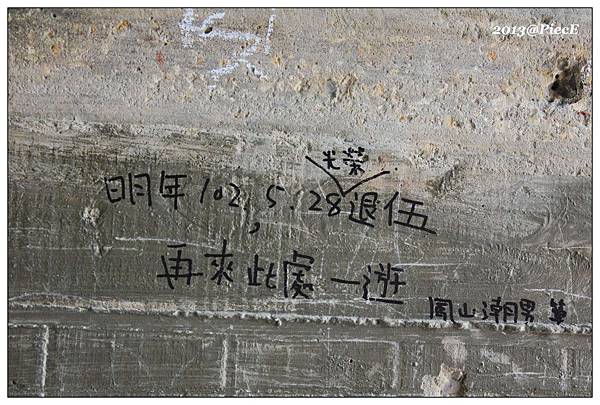 2013@PiecE
光榮
明年102.5.28退伍,
再來此處一逛
鳳山潮男 筆